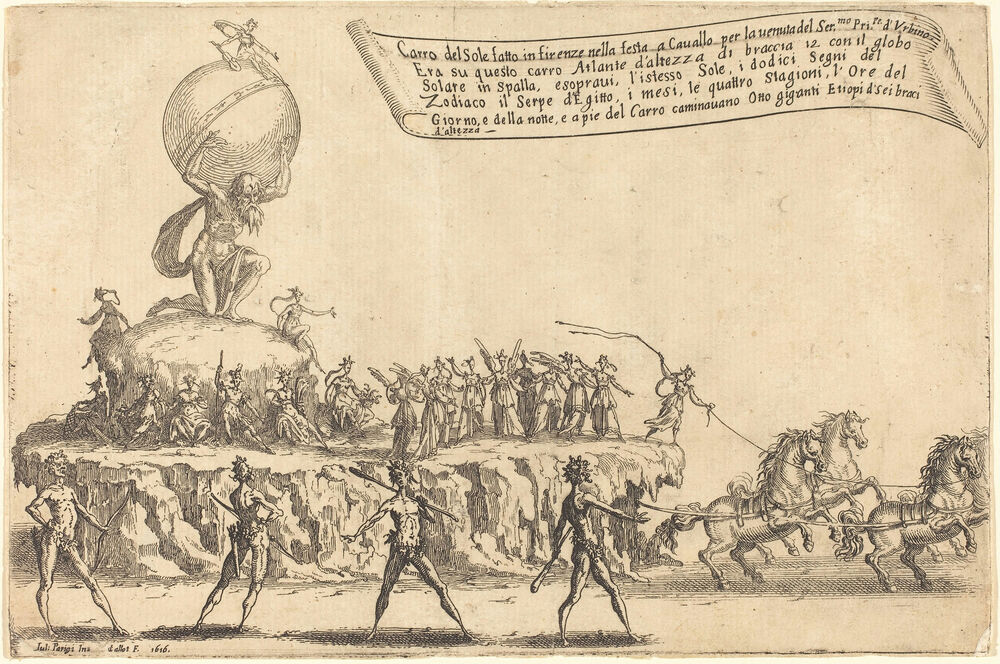 Carro del Sole fatto in firenze nella festa a Cauallo per la uenuta del Ser.mo Pri.pe d'Vrbino
Era su questo carro Atlante d'altezza di braccia 12 con il globo
Solare in Spalla, esoprauì, l'istesso Sole, i dodici Segni del
Zodiaco il Serpe d'Egitto, i mesi, le quattro Stagioni, l'Ore del
Giorno, e della notte, e a pie del Carro caminauano Otto giganti Etiopi d'Sei braci
d'altezza
Iul. Parigi Inu Callot F. 1616.